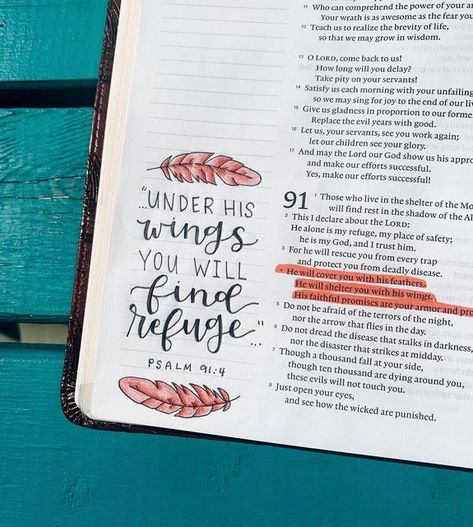 "...UNDER HIS
wings
YOU WILL
find
refuge..."
PSALM 91:4
11 Who can comprehend the power of your
Your wrath is as awesome as the fear you
12 Teach us to realize the brevity of life,
so that we may grow in wisdom.
13 O LORD, come back to us!
How long will you delay?
Take pity on your servants!
14 Satisfy us each morning with your unfailing
so we may sing for joy to the end of our
15 Give us gladness in proportion to our
Replace the evil years with good.
16 Let us, your servants, see you work again;
let our children see your glory.
17 And may the Lord our God show us his
and make our efforts successful.
Yes, make our efforts successful!
91 1 Those who live in the shelter of the
will find rest in the shadow of the
2 This I declare about the LORD:
He alone is my refuge, my place of safety;
he is my God, and I trust him.
3 For he will rescue you from every trap
and protect you from deadly disease.
4 He will cover you with his feathers.
He will shelter you with his wings.
His faithful promises are your armor and
5 Do not be afraid of the terrors of the night,
nor the arrow that flies in the day.
6 Do not dread the disease that stalks in darkness,
nor the disaster that strikes at midday.
7 Though a thousand fall at your side,
though ten thousand are dying around you,
these evils will not touch you.
8 Just open your eyes,
and see how the wicked are punished.